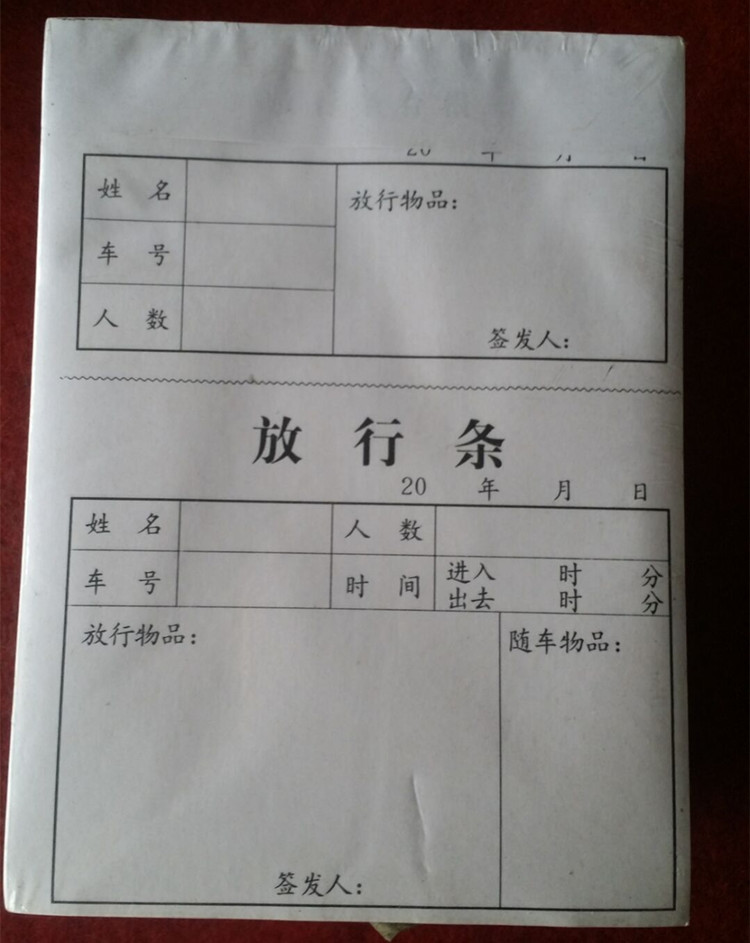 20 年 月 日
姓 名
放行物品：
车 号
人 数
签发人：
放 行 条
20 年 月 日
姓 名 人 数
车 号 时 间 进入 时 分
出去 时 分
放行物品： 随车物品：
签发人：